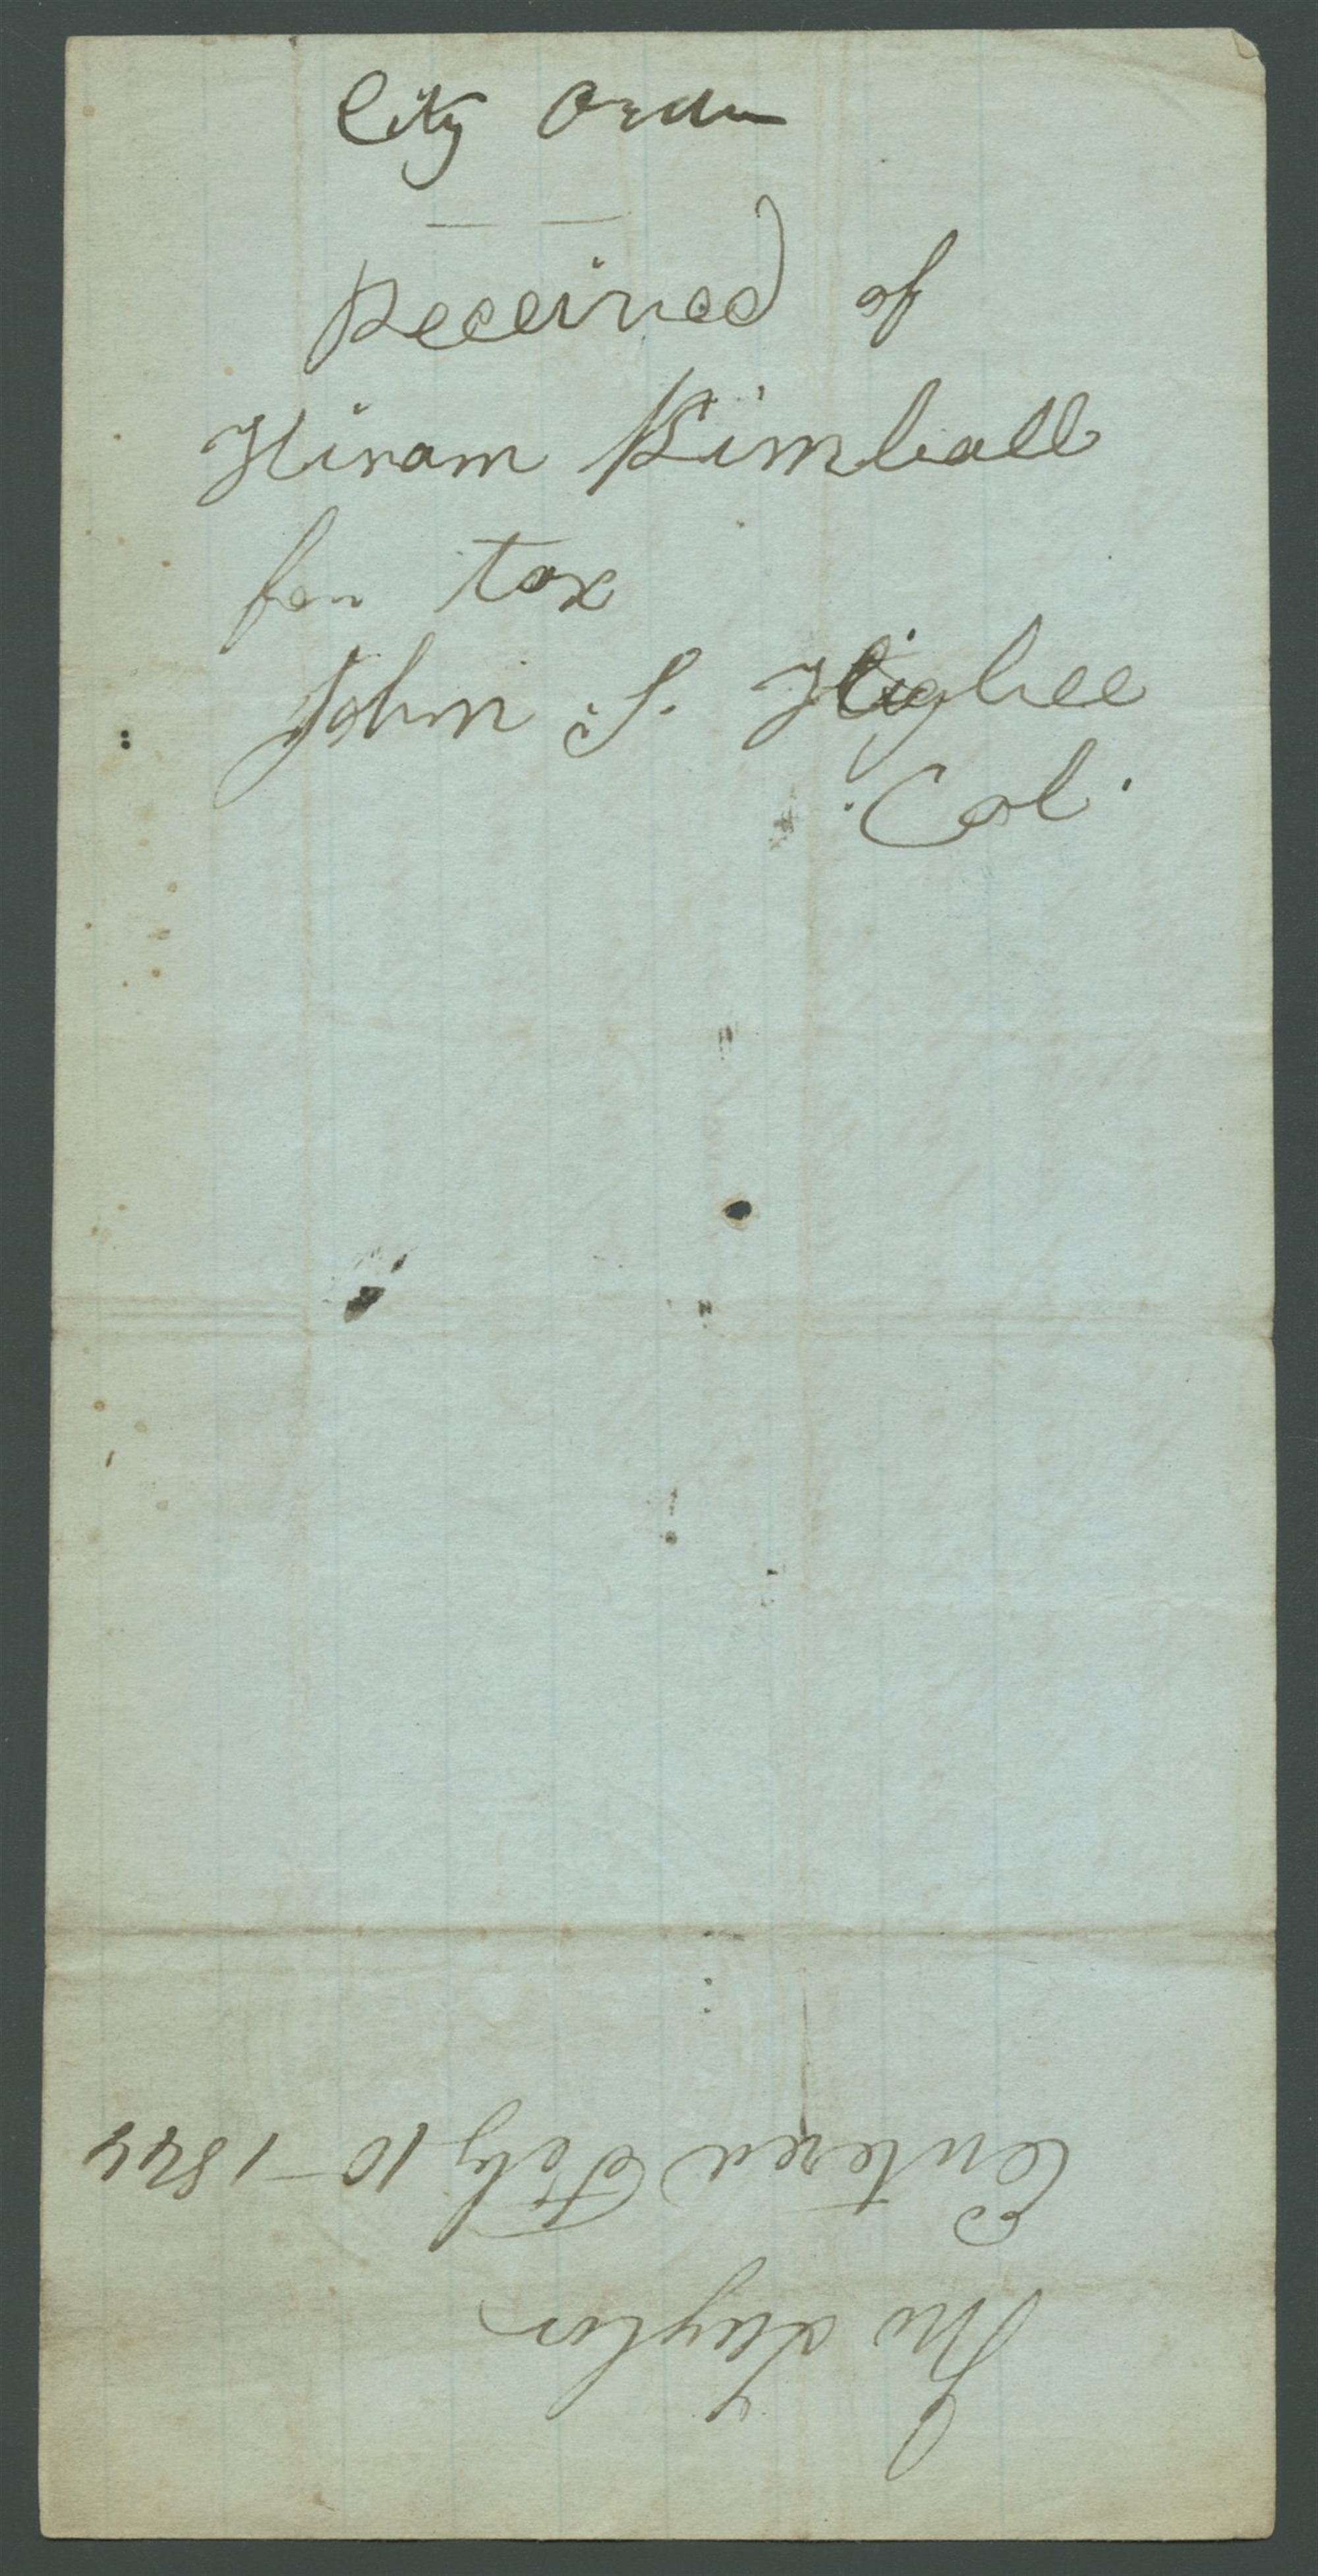 City Order
Received of
Hiram Kimball
for tax
John S. Higbee
Col.
Jno Taylor
Entered Feby 10 - 1844